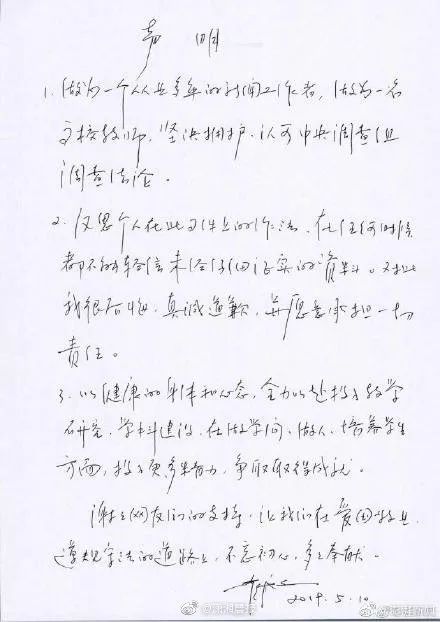 声 明
1. 做为一个从业多年的新闻工作者，做为一名
高校教师，坚决拥护、认可中央调查组
调查结论。
2. 反思个人在此事件上的作法，在任何时候
都不能轻信未经仔细证实的资料。对此
我很后悔，真诚道歉，并愿意承担一切
责任。
3. 以健康的身体和心态，全力以赴投入教学
研究、学科建设，在做学问、做人、培养学生
方面，投入更多精力，争取取得成就。
谢谢网友们的支持，让我们在爱国敬业
遵规守法的道路上，不忘初心，多多奉献。
2019.5.10